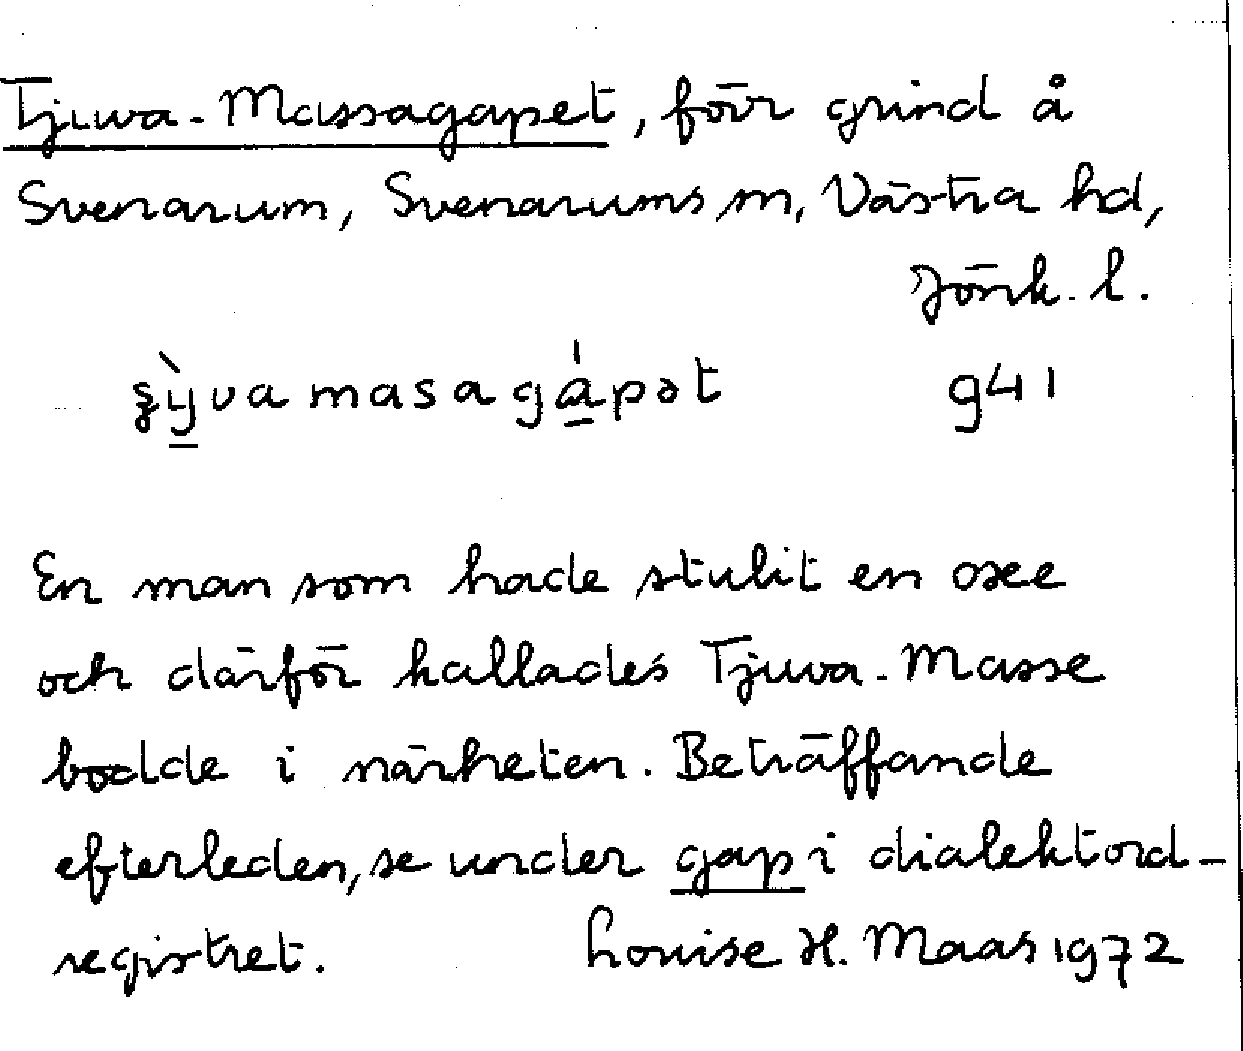 Tjuva-Massagapet, förr grind å
Svenarum, Svenarums sn, Västra hd,
Jönk. l.
masagápət g41
En man som hade stulit en oxe
och därför kallades Tjuva-Masse
bodde i närheten. Beträffande
efterleden, se under gap i dialektord-
registret. Louise H. Maas 1972